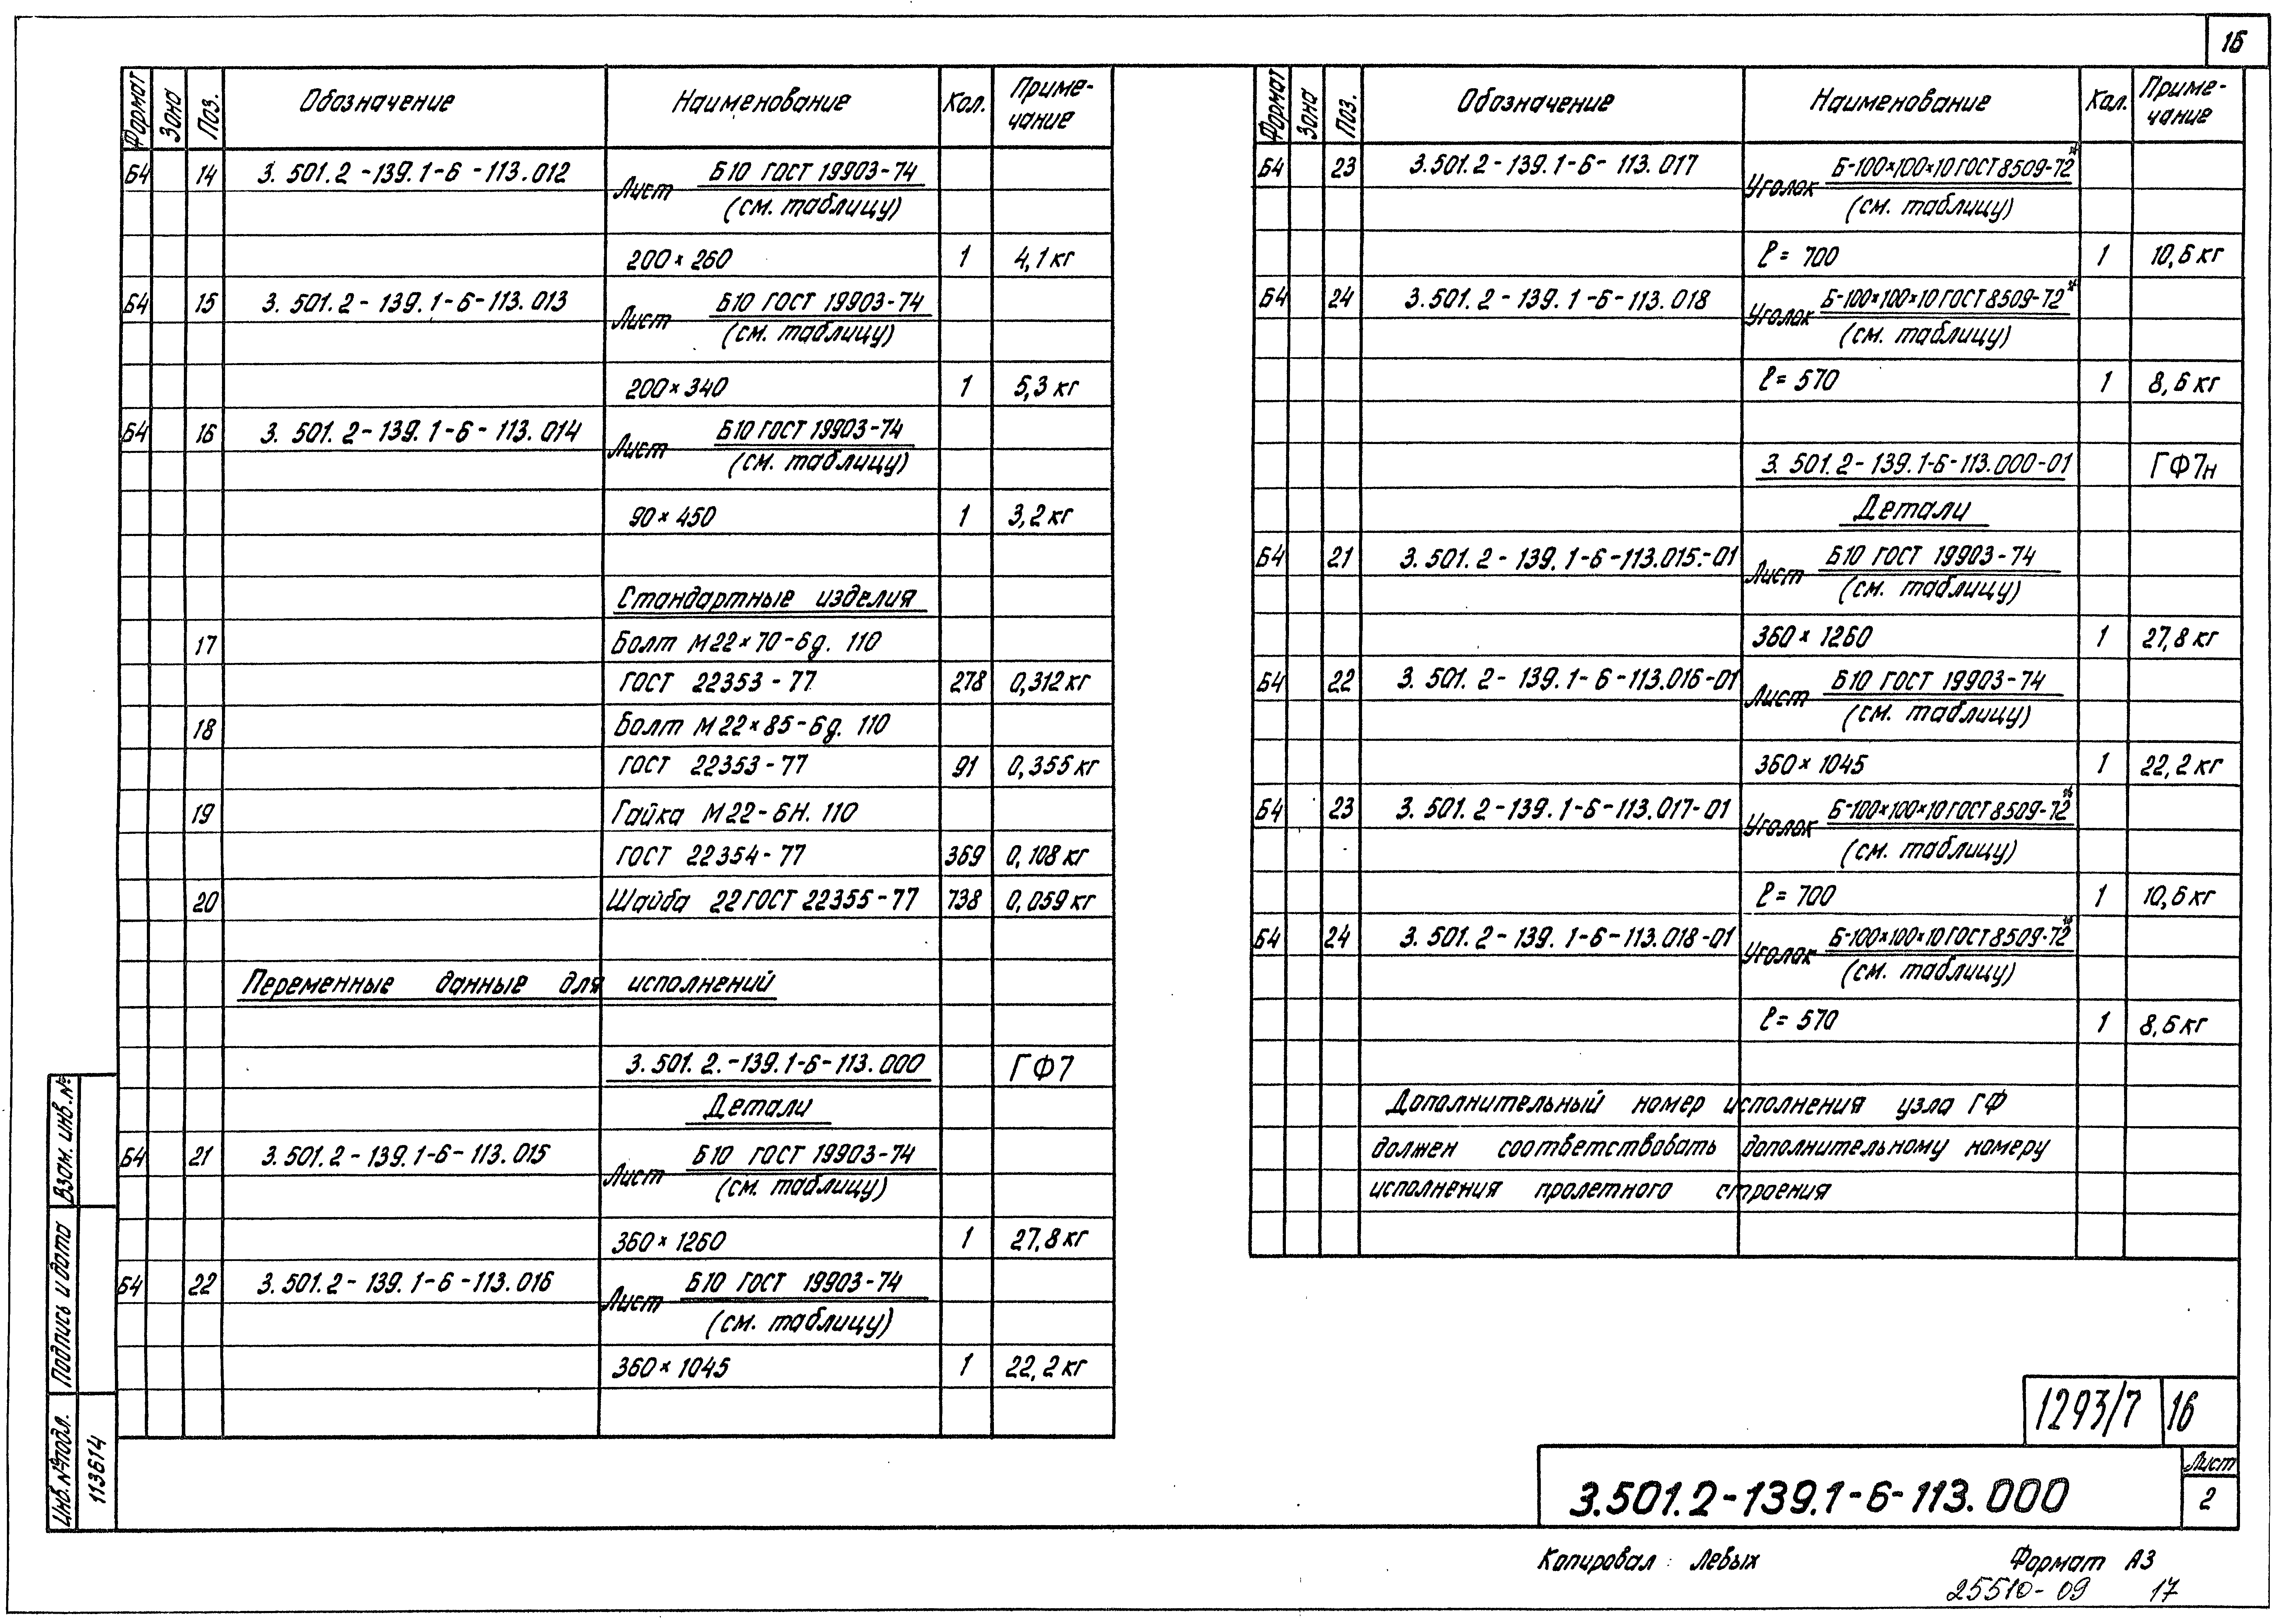 16
Формат Зона Поз. Обозначение Наименование Кол. Приме-
чание
Б4 14 3.501.2-139.1-6-113.012 Лист Б10 ГОСТ 19903-74
(см. таблицу)
200×260 1 4,1 кг
Б4 15 3.501.2-139.1-6-113.013 Лист Б10 ГОСТ 19903-74
(см. таблицу)
200×340 1 5,3 кг
Б4 16 3.501.2-139.1-6-113.014 Лист Б10 ГОСТ 19903-74
(см. таблицу)
90×450 1 3,2 кг
Стандартные изделия
17 Болт М22×70-6g.110
ГОСТ 22353-77 278 0,312 кг
18 Болт М22×85-6g.110
ГОСТ 22353-77 91 0,355 кг
19 Гайка М22-6Н.110
ГОСТ 22354-77 369 0,108 кг
20 Шайба 22 ГОСТ 22355-77 738 0,059 кг
Переменные данные для исполнений
3.501.2.-139.1-6-113.000 ГФ7
Детали
Б4 21 3.501.2-139.1-6-113.015 Лист Б10 ГОСТ 19903-74
(см. таблицу)
360×1260 1 27,8 кг
Б4 22 3.501.2-139.1-6-113.016 Лист Б10 ГОСТ 19903-74
(см. таблицу)
360×1045 1 22,2 кг
Формат Зона Поз. Обозначение Наименование Кол. Приме-
чание
Б4 23 3.501.2-139.1-6-113.017 Уголок Б-100×100×10 ГОСТ 8509-72*
(см. таблицу)
ℓ=700 1 10,6 кг
Б4 24 3.501.2-139.1-6-113.018 Уголок Б-100×100×10 ГОСТ 8509-72*
(см. таблицу)
ℓ=570 1 8,6 кг
3.501.2-139.1-6-113.000-01 ГФ7н
Детали
Б4 21 3.501.2-139.1-6-113.015-01 Лист Б10 ГОСТ 19903-74
(см. таблицу)
360×1260 1 27,8 кг
Б4 22 3.501.2-139.1-6-113.016-01 Лист Б10 ГОСТ 19903-74
(см. таблицу)
360×1045 1 22,2 кг
Б4 23 3.501.2-139.1-6-113.017-01 Уголок Б-100×100×10 ГОСТ 8509-72*
(см. таблицу)
ℓ=700 1 10,6 кг
Б4 24 3.501.2-139.1-6-113.018-01 Уголок Б-100×100×10 ГОСТ 8509-72*
(см. таблицу)
ℓ=570 1 8,6 кг
Дополнительный номер исполнения узла ГФ
должен соответствовать дополнительному номеру
исполнения пролетного строения
Взам. инв. №
Подпись и дата
Инв. № подл. 113614
1293/7 16
3.501.2-139.1-6-113.000
Лист
2
Копировал: Левых Формат А3
25510-09 17